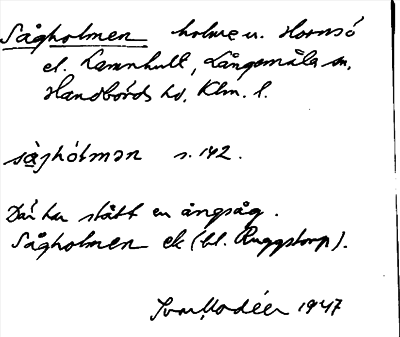 Sågholmen holme u. Hornsö
el. Lammhult, Långemåla sn,
Handbörds hd, Klm. l.
såg̀hólmən s. 142.
Där har stått en ångsåg.
Sågholmen ek (bl. Ruggstorp).
Ivar Modéer 1947